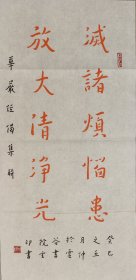 滅諸煩惱患
放大清淨光
華嚴經偈集聯
癸巳
五
月
於雪
谷書
院雲
印書